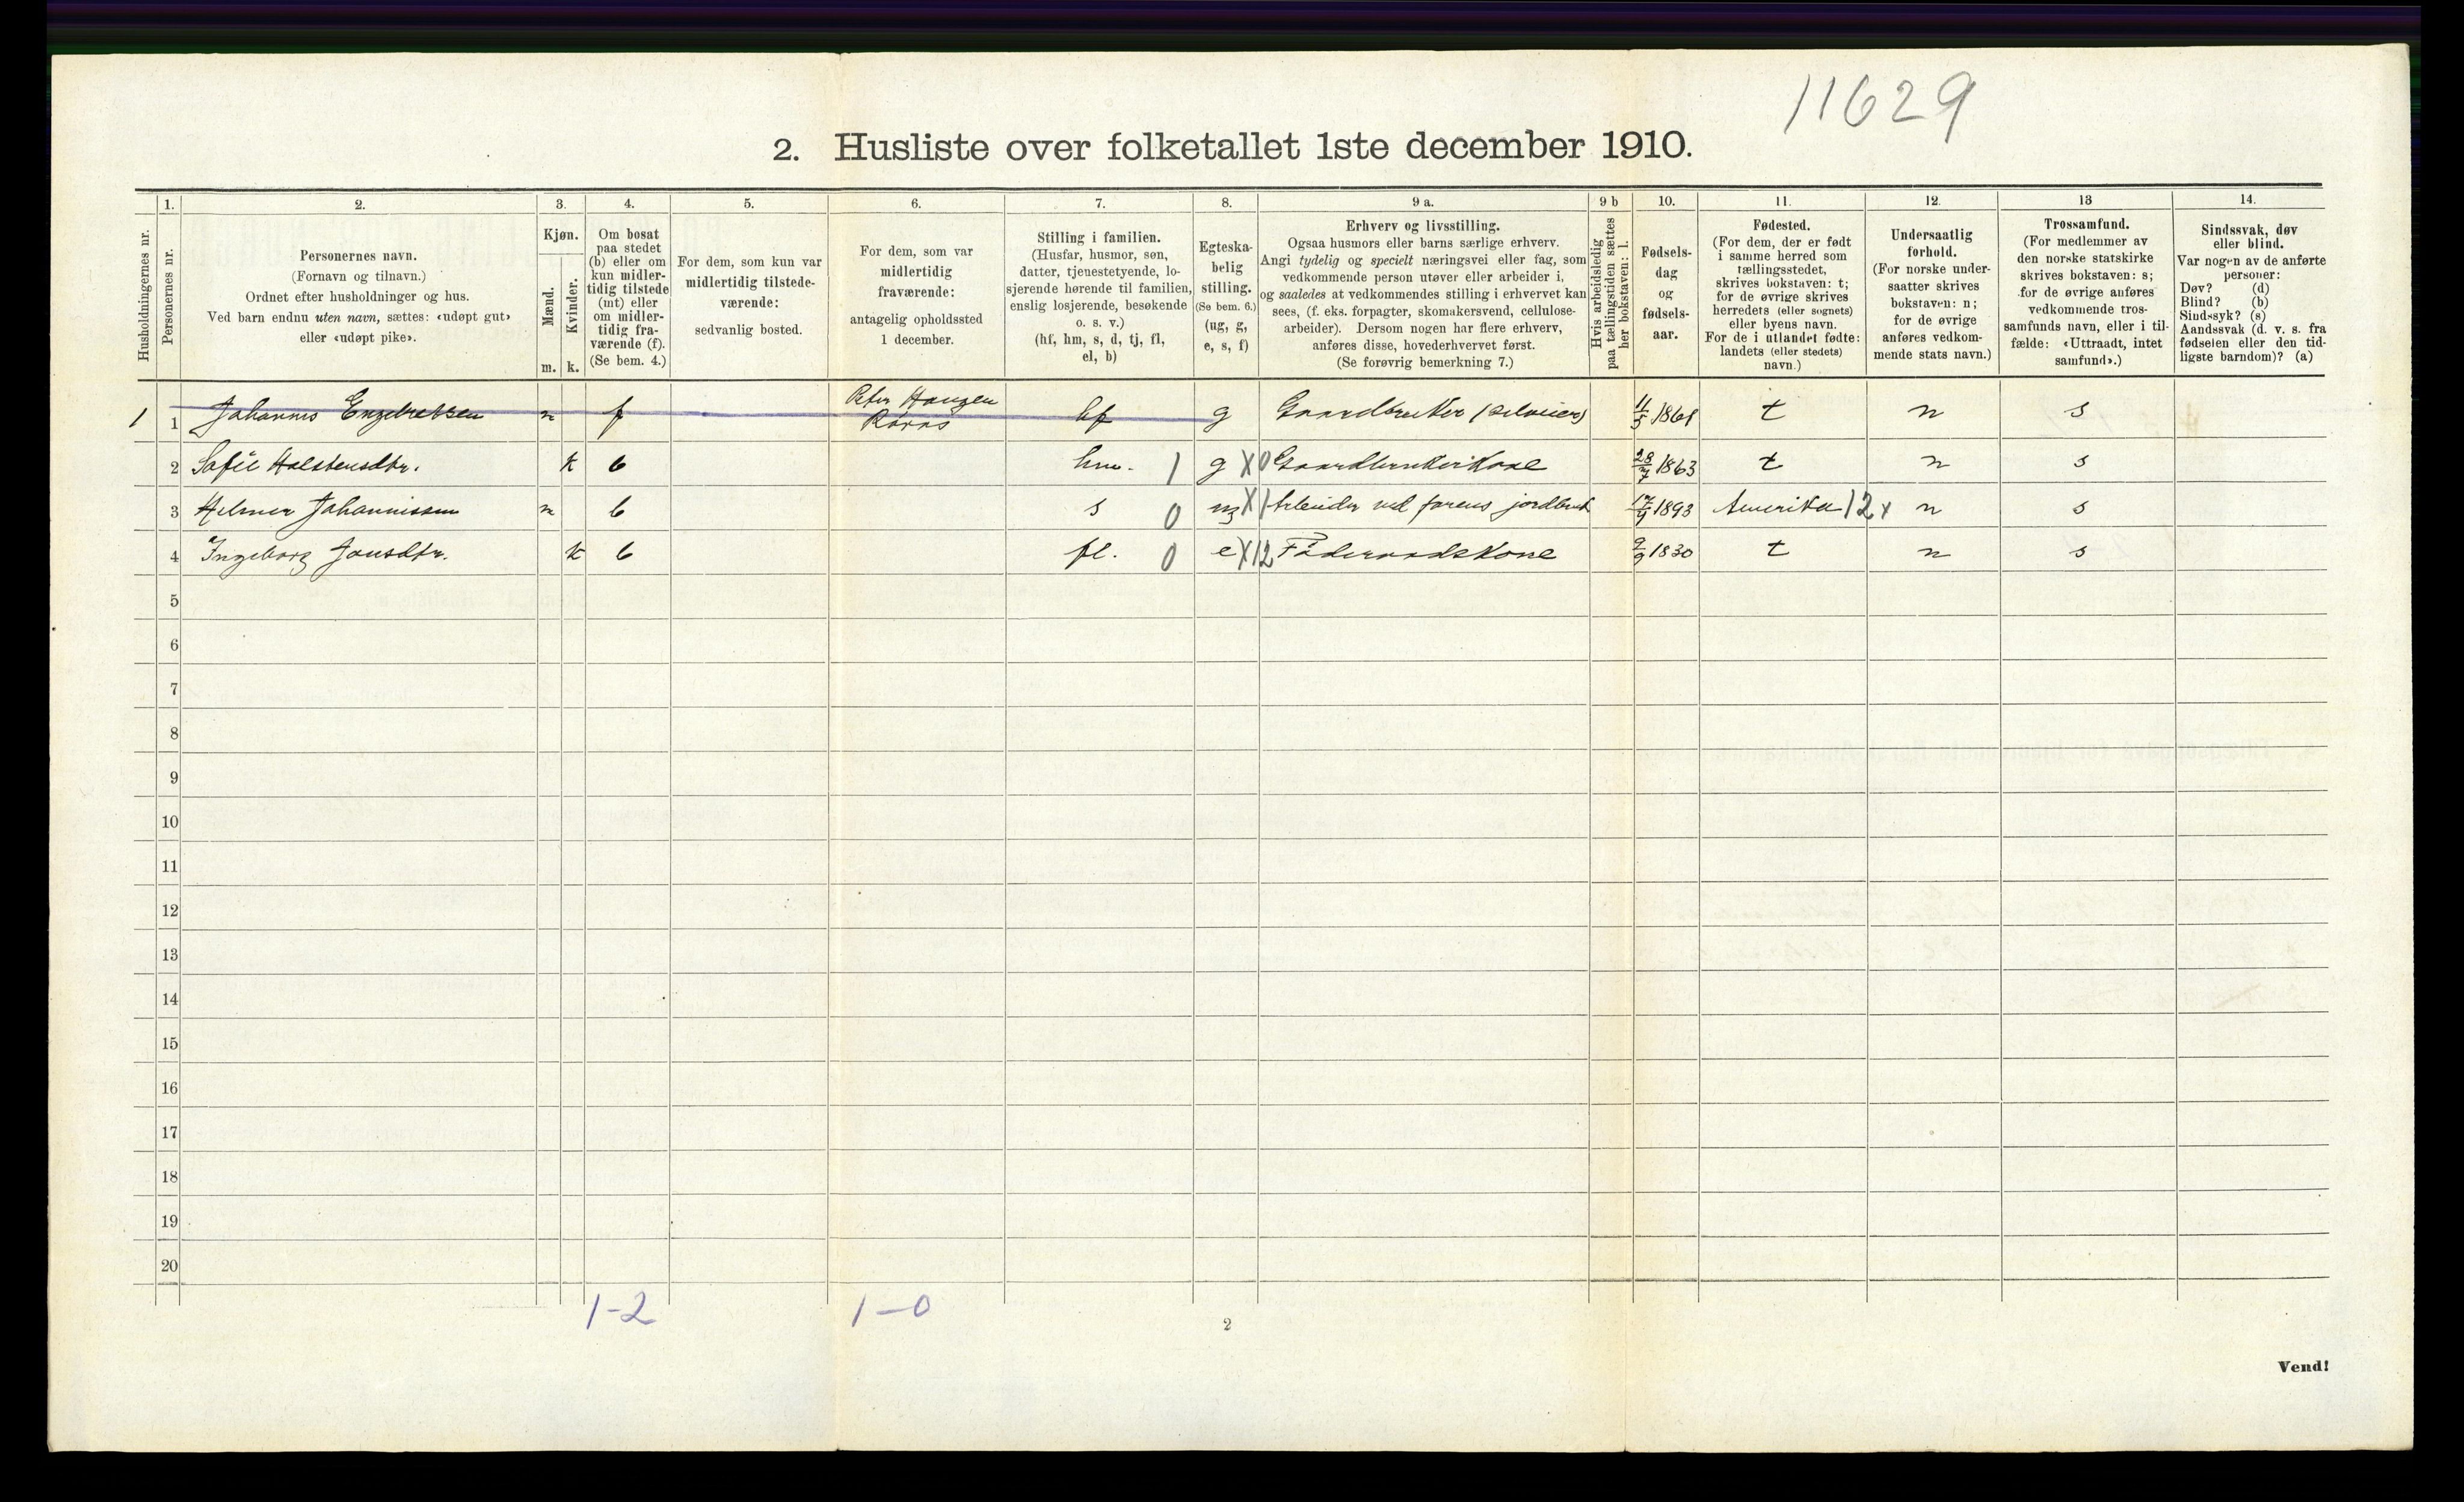 11629
2. Husliste over folketallet 1ste december 1910.
Husholdningernes nr.
1.
Personernes nr.
2.
Personernes navn.
(Fornavn og tilnavn.)
Ordnet efter husholdninger og hus.
Ved barn endnu uten navn, sættes: «udøpt gut»
eller «udøpt pike».
3.
Kjøn.
Mænd.
Kvinder.
m. k.
4.
Om bosat
paa stedet
(b) eller om
kun midler-
tidig tilstede
(mt) eller
om midler-
tidig fra-
værende (f).
(Se bem. 4.)
5.
For dem, som kun var
midlertidig tilstede-
værende:
sedvanlig bosted.
6.
For dem, som var
midlertidig
fraværende:
antagelig opholdssted
1 december.
7.
Stilling i familien.
(Husfar, husmor, søn,
datter, tjenestetyende, lo-
sjerende hørende til familien,
enslig losjerende, besøkende
o. s. v.)
(hf, hm, s, d, tj, fl,
el, b)
8.
Egteska-
belig
stilling.
(Se bem. 6.)
(ug, g,
e, s, f)
9 a.
Erhverv og livsstilling.
Ogsaa husmors eller barns særlige erhverv.
Angi tydelig og specielt næringsvei eller fag, som
vedkommende person utøver eller arbeider i,
og saaledes at vedkommendes stilling i erhvervet kan
sees, (f. eks. forpagter, skomakersvend, cellulose-
arbeider). Dersom nogen har flere erhverv,
anføres disse, hovederhvervet først.
(Se forøvrig bemerkning 7.)
9 b
Hvis arbeidsledig
paa tællingstiden sættes
her bokstaven: l.
10.
Fødsels-
dag
og
fødsels-
aar.
11.
Fødested.
(For dem, der er født
i samme herred som
tællingsstedet,
skrives bokstaven: t;
for de øvrige skrives
herredets (eller sognets)
eller byens navn.
For de i utlandet fødte:
landets (eller stedets)
navn.)
12.
Undersaatlig
forhold.
(For norske under-
saatter skrives
bokstaven: n;
for de øvrige
anføres vedkom-
mende stats navn.)
13
Trossamfund.
(For medlemmer av
den norske statskirke
skrives bokstaven: s;
for de øvrige anføres
vedkommende tros-
samfunds navn, eller i til-
fælde: «Uttraadt, intet
samfund».)
14.
Sindssvak, døv
eller blind.
Var nogen av de anførte
personer:
Døv? (d)
Blind? (b)
Sindssyk? (s)
Aandssvak (d. v. s. fra
fødselen eller den tid-
ligste barndom)? (a)
1 1 Johannes Engebretsen m f Peter Haugen Røros hf g Gaardbruker (selveier) 11/5 t n s
2 Sofie Halstensdtr. k b hm. 1 g X0 Gaardbrukerkone 28/7 1863 t n s
3 Helmer Johannissen m b s 0 ug X1 Arbeider ved farens jordbruk 1893 Amerika 12 x n s
4 Ingeborg Jonsdtr. k b fl. 0 e X12 Føderaadskone 9/9 1830 t n s
5
6
7
8
9
10
11
12
13
14
15
16
17
18
19
20
1-2 1-0
2
Vend!